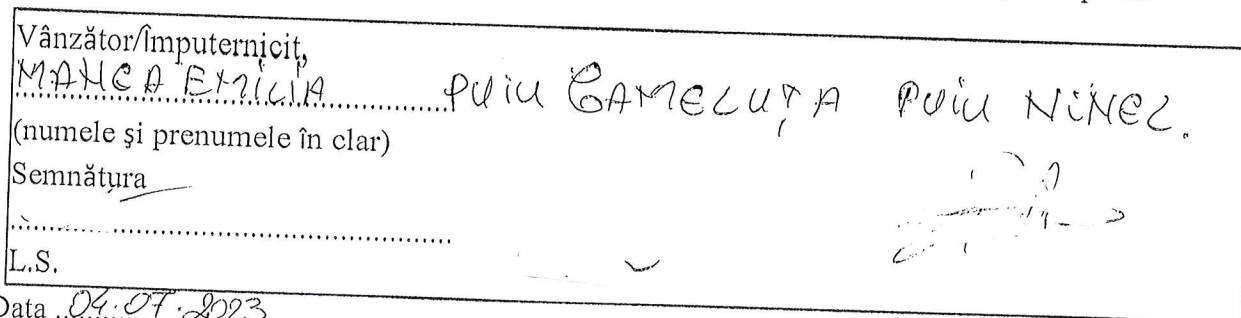 Vânzător/Împuternicit,
MANCA EMILIA PUIU CAMELUȚA PUIU NINEL.
(numele și prenumele în clar)
Semnătura
L.S.
Data 04.07.2023